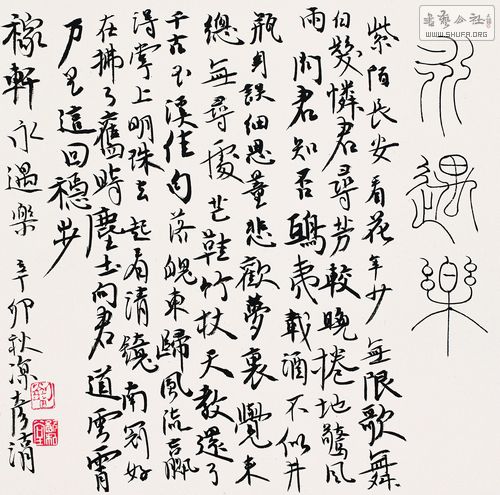 永遇樂
紫陌長安看花年少無限歌舞
白髮憐君尋芳較晚捲地驚風
雨問君知否鴟夷載酒不似井
瓶身誤細思量悲歡夢裏覺來
總無尋處芒鞋竹杖天教還了
千古玉溪佳句落魄東歸風流贏
得掌上明珠去起看清鏡南冠好
在拂了舊時塵土向君道雲霄
万里這回穩步
稼軒永遇樂 辛卯秋
书艺公社
WWW.SHUFA.ORG